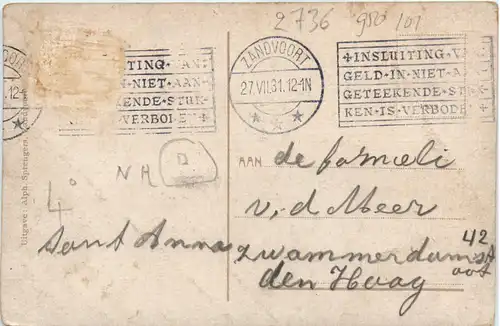 2736 980 101
ZANDVOORT
27.VII.31.12-1N
12-1
TING VAN
N NIET AAN
KENDE STUK
S VERBOD
+INSLUITING VA
GELD IN NIET A
GETEEKENDE ST
KEN IS VERBODE
Uitgave: Alph. Sprengers,
NH D
AAN de famieli
v.d Meer
4°
Sant Anna
zwammerdamst 42
den Haag